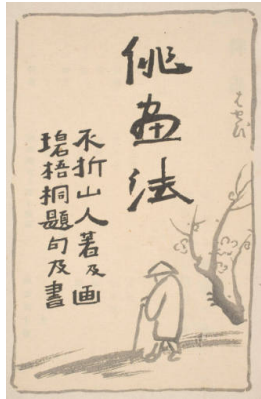 俳画法
不折山人著及画
碧梧桐題句及書